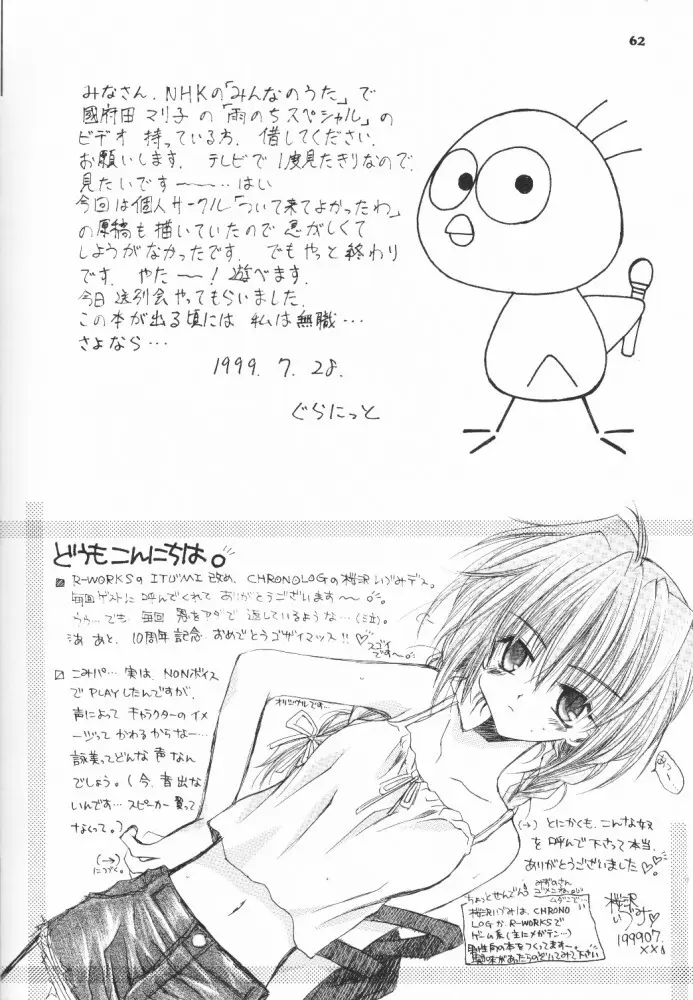 62
みなさん、NHKの「みんなのうた」で
國府田マリ子の「雨のちスペシャル」の
ビデオ持っている方、借してください、
お願いします。テレビで1度見たきりなので、
見たいです〜〜…はい
今回は個人サークル「ついて来てよかったわ」
の原稿も描いていたので忍がしくて
しようがなかったです。でもやっと終わり
です。やた〜！遊べます。
今日送別会やってもらいました。
この本が出る頃には私は無職…
さよなら…
1999. 7. 28.
ぐらにっと
どうもこんにちは。
R-WORKSのITUMI改め、CHRONOLOGの桜沢いづみデス。
毎回ゲストに呼んでくれてありがとうございます〜。
うぅ…でも、毎回恩をアダで返しているような…(泣)。
あ あと、10周年記念おめでとうゴザイマッス!!♡
スゴイ
です〜。
こみパ…実は、NONボイス
でPLAYしたんですが、
声によってキャラクターのイメ
ージってかわるからな…
詠美ってどんな声なん
でしょう。(今、音出な
いんです…スピーカー買って
なくって。)
(→)
につづく。
オリジナルです…
(→)とにかくも、こんな奴
を呼んで下さって本当、
ありがとうございました♡♡
ちょっとせんでん
みずのさん
ゴメンなさい
桜沢いづみは、CHRONO
LOGか、R-WORKSで
ゲーム系(主にメガテン…)
男性向の本をつくってます〜。
桜沢
いづみ♡
199907.
××